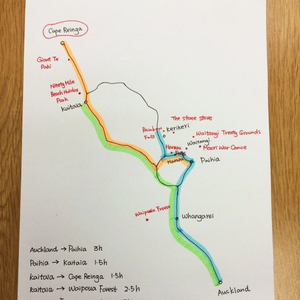 Cape Reinga
Giant Te
Paki
Ninety Mile
Beach Holiday
Park
Kaitaia
The Stone Store
Rainbow
Falls
Kerikeri
Waitangi Treaty Grounds
Waitangi
Maori War Dance
Haruru
Paihia
Waipoua Forest
Whangarei
Auckland
Auckland → Paihia 3h
Paihia → Kaitaia 1.5h
Kaitaia → Cape Reinga 1.5h
Kaitaia → Waipoua Forest 2.5h